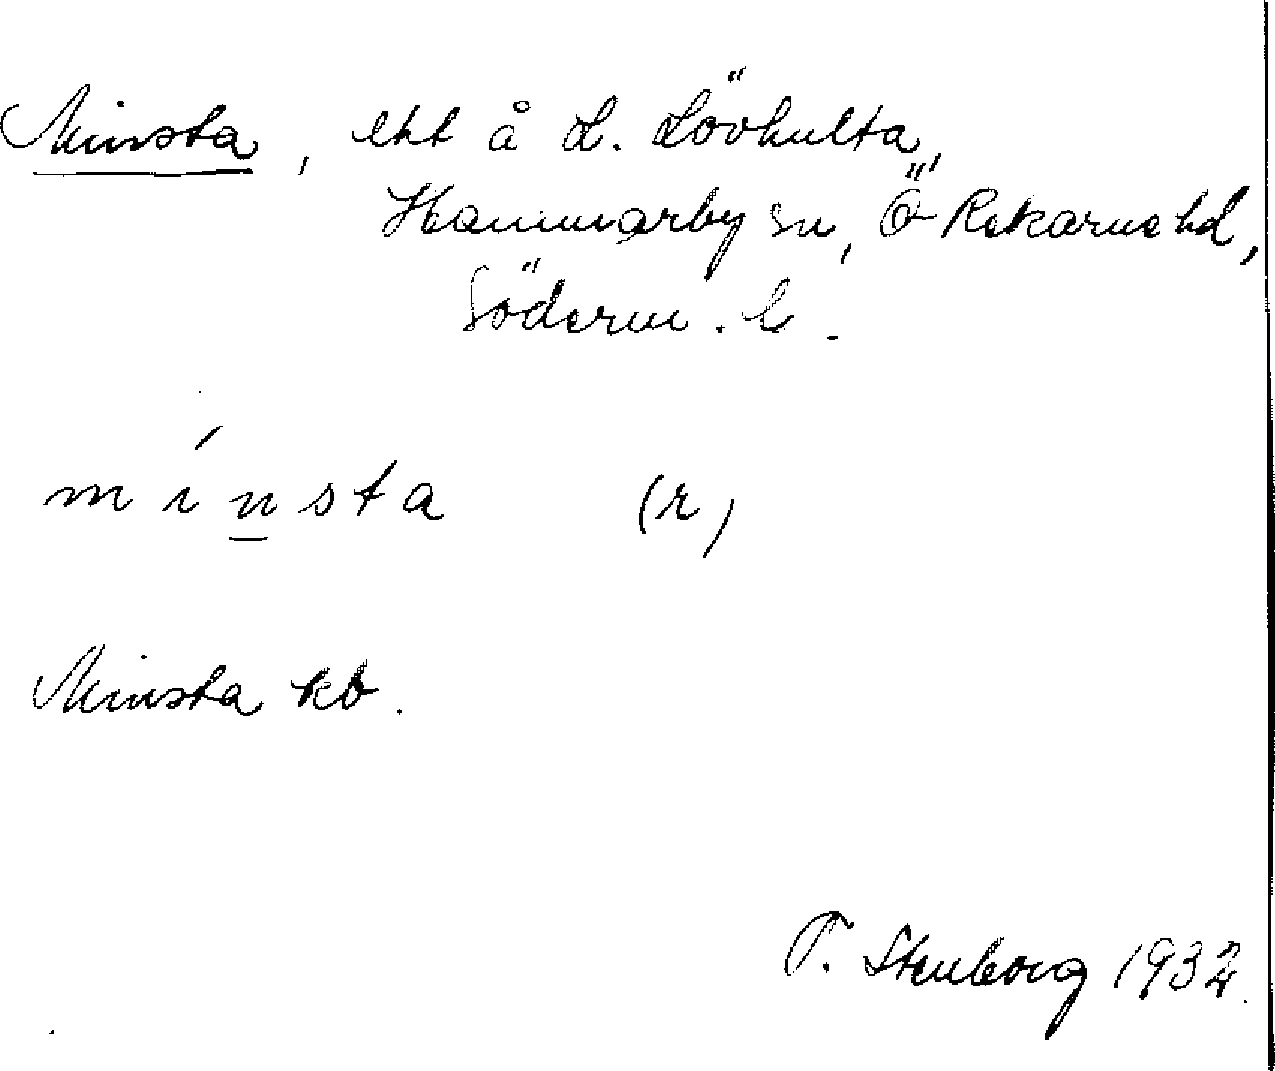 Minsta, lht å L. Lövhulta,
Hammarby sn, Ö Rekarne hd,
Söderm. l.
mínsta (r)
Minsta kb.
T. Stenborg 1932.